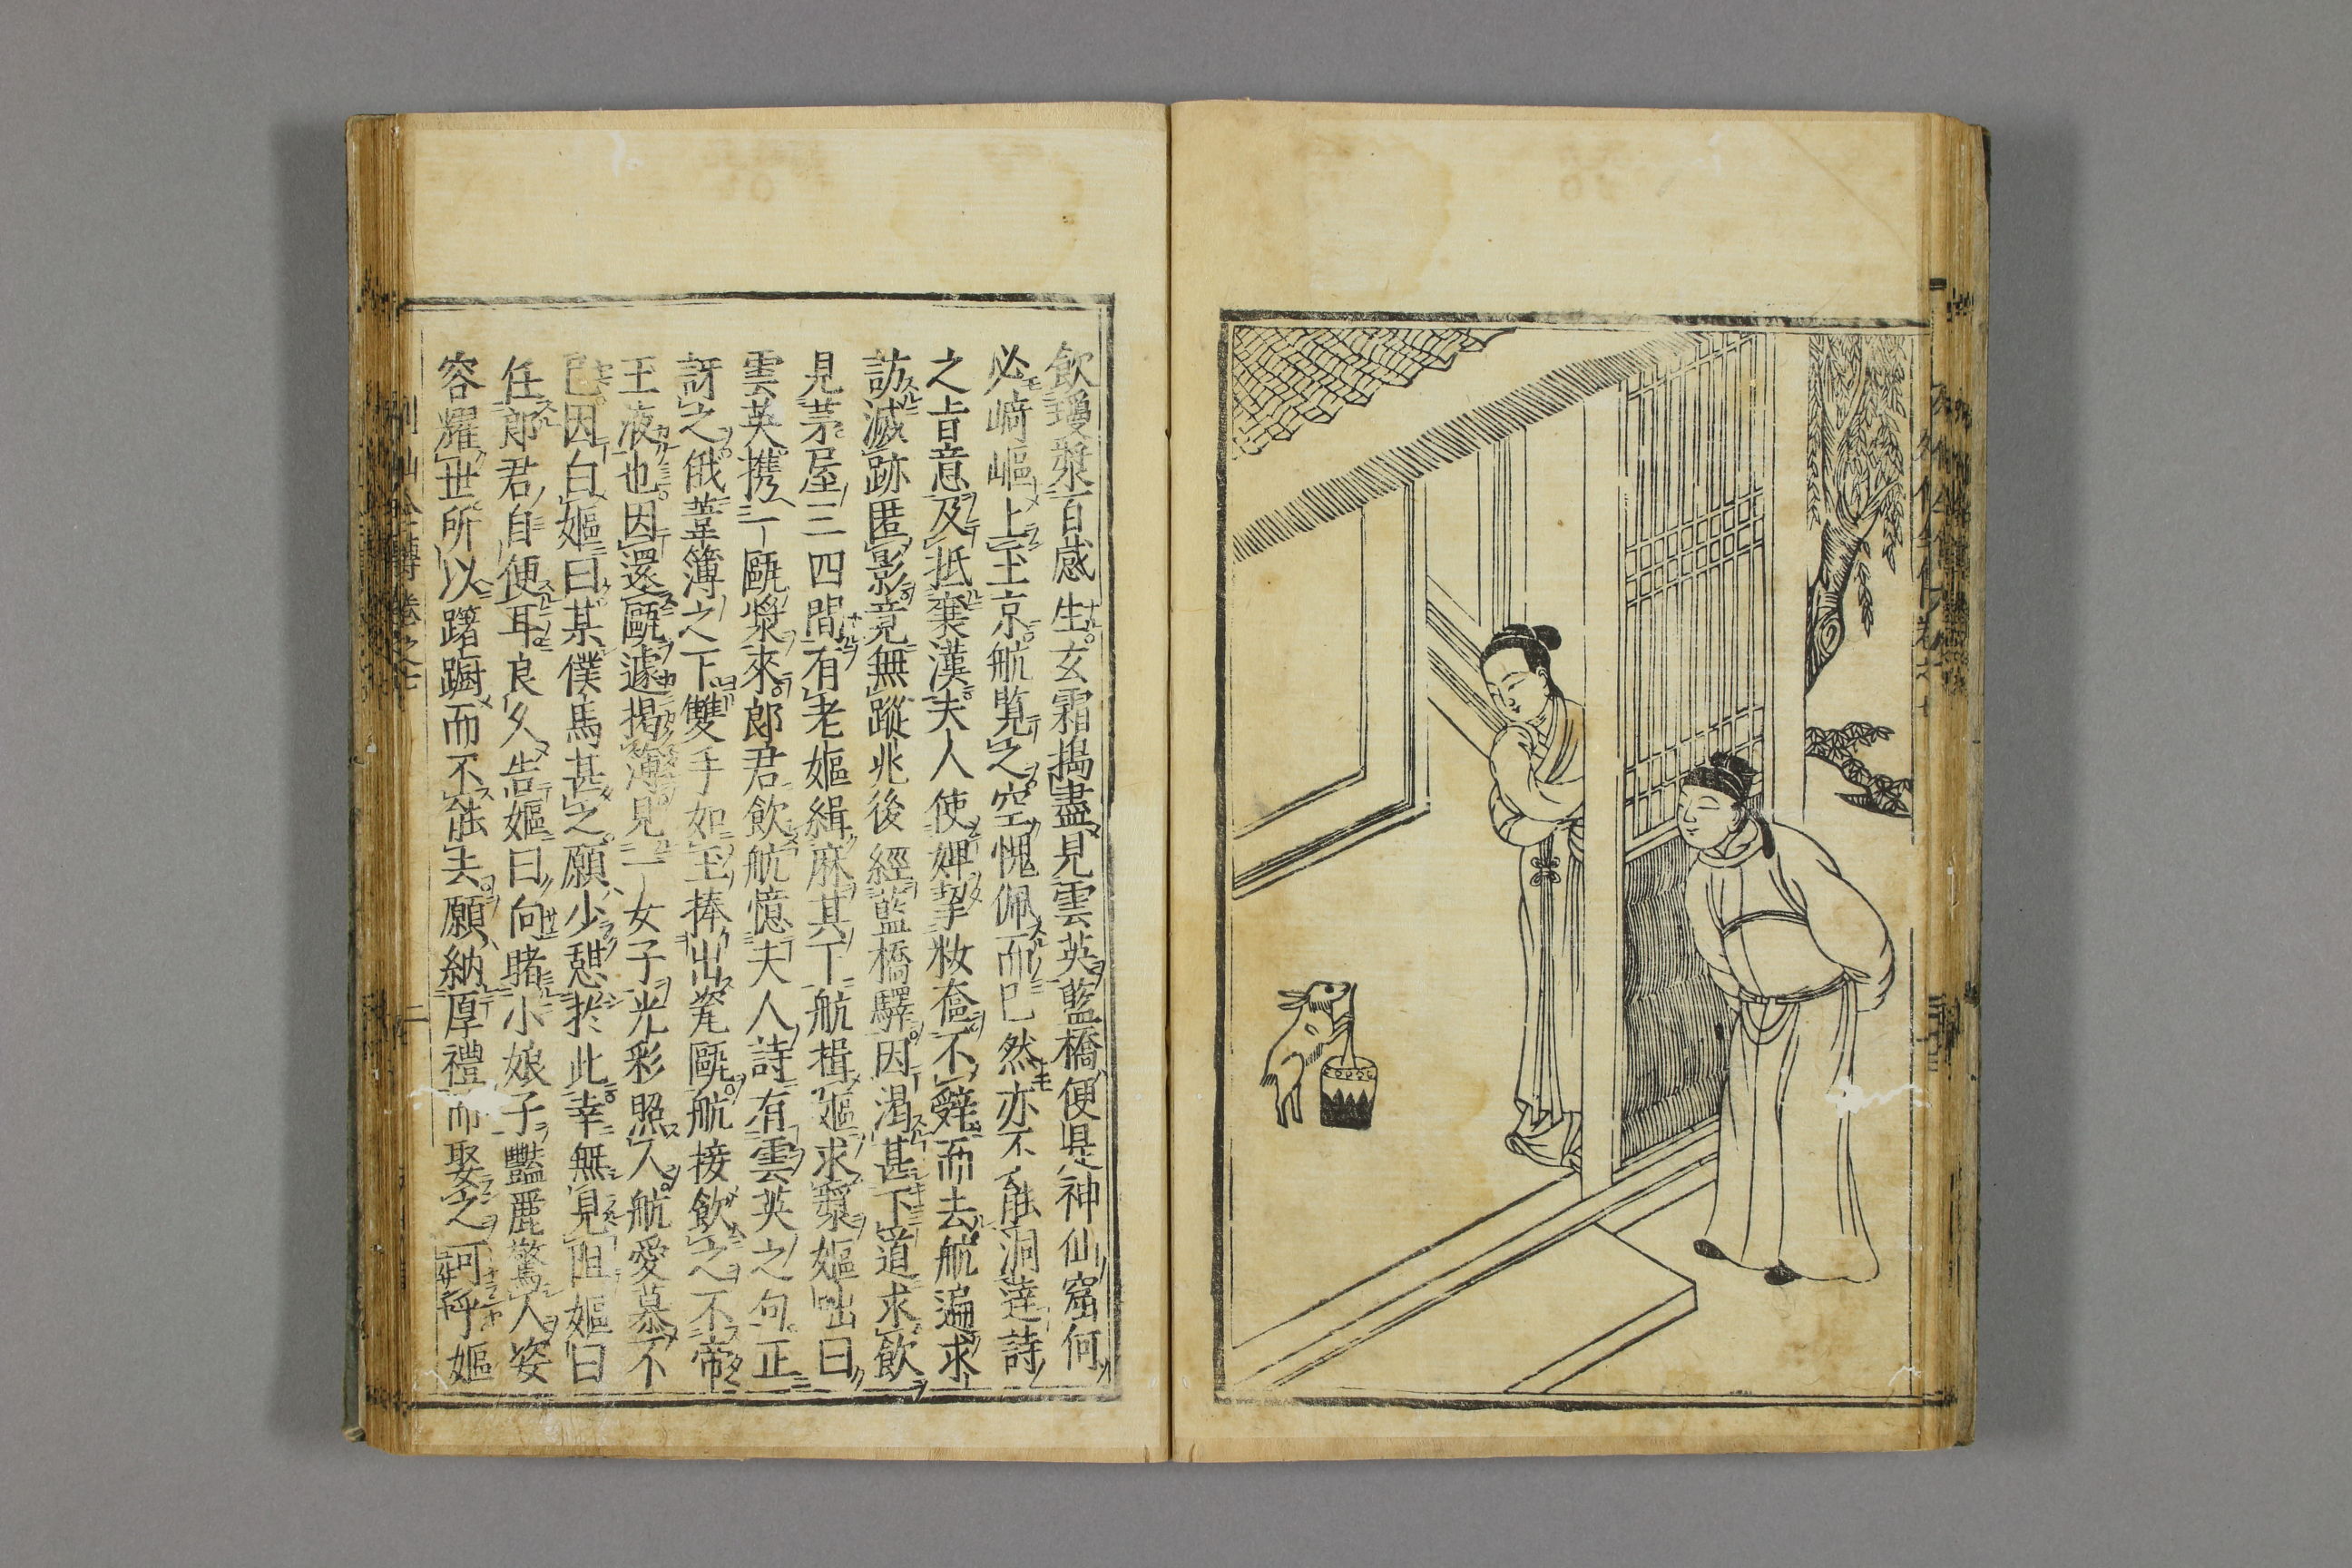 飲瓊漿百感生玄霜搗盡見雲英藍橋便是神仙窟何
必崎嶇上玉京航覧之空愧佩而已然亦不能洞達詩
之旨意及抵襄漢夫人使婢挈妝奩不辭而去航遍求
訪滅跡匿影竟無蹤兆後經藍橋驛因渴甚下道求飲
見茅屋三四間有老嫗緝麻其下航揖嫗求漿嫗咄曰
雲英携一甌漿來郎君飲航憶夫人詩有雲英之句正
訝之俄葦簿之下雙手如玉捧出瓷甌航接飲之不啻
玉液也因還甌遽揭簿見一女子光彩照人航愛慕不
已因白嫗曰某僕馬甚乏願少憩於此幸無見阻嫗曰
任郎君自便耳良久告嫗曰向睹小娘子豔麗驚人姿
容耀世所以躇躕而不能去願納厚禮而娶之可乎嫗
列仙全傳卷之七
二